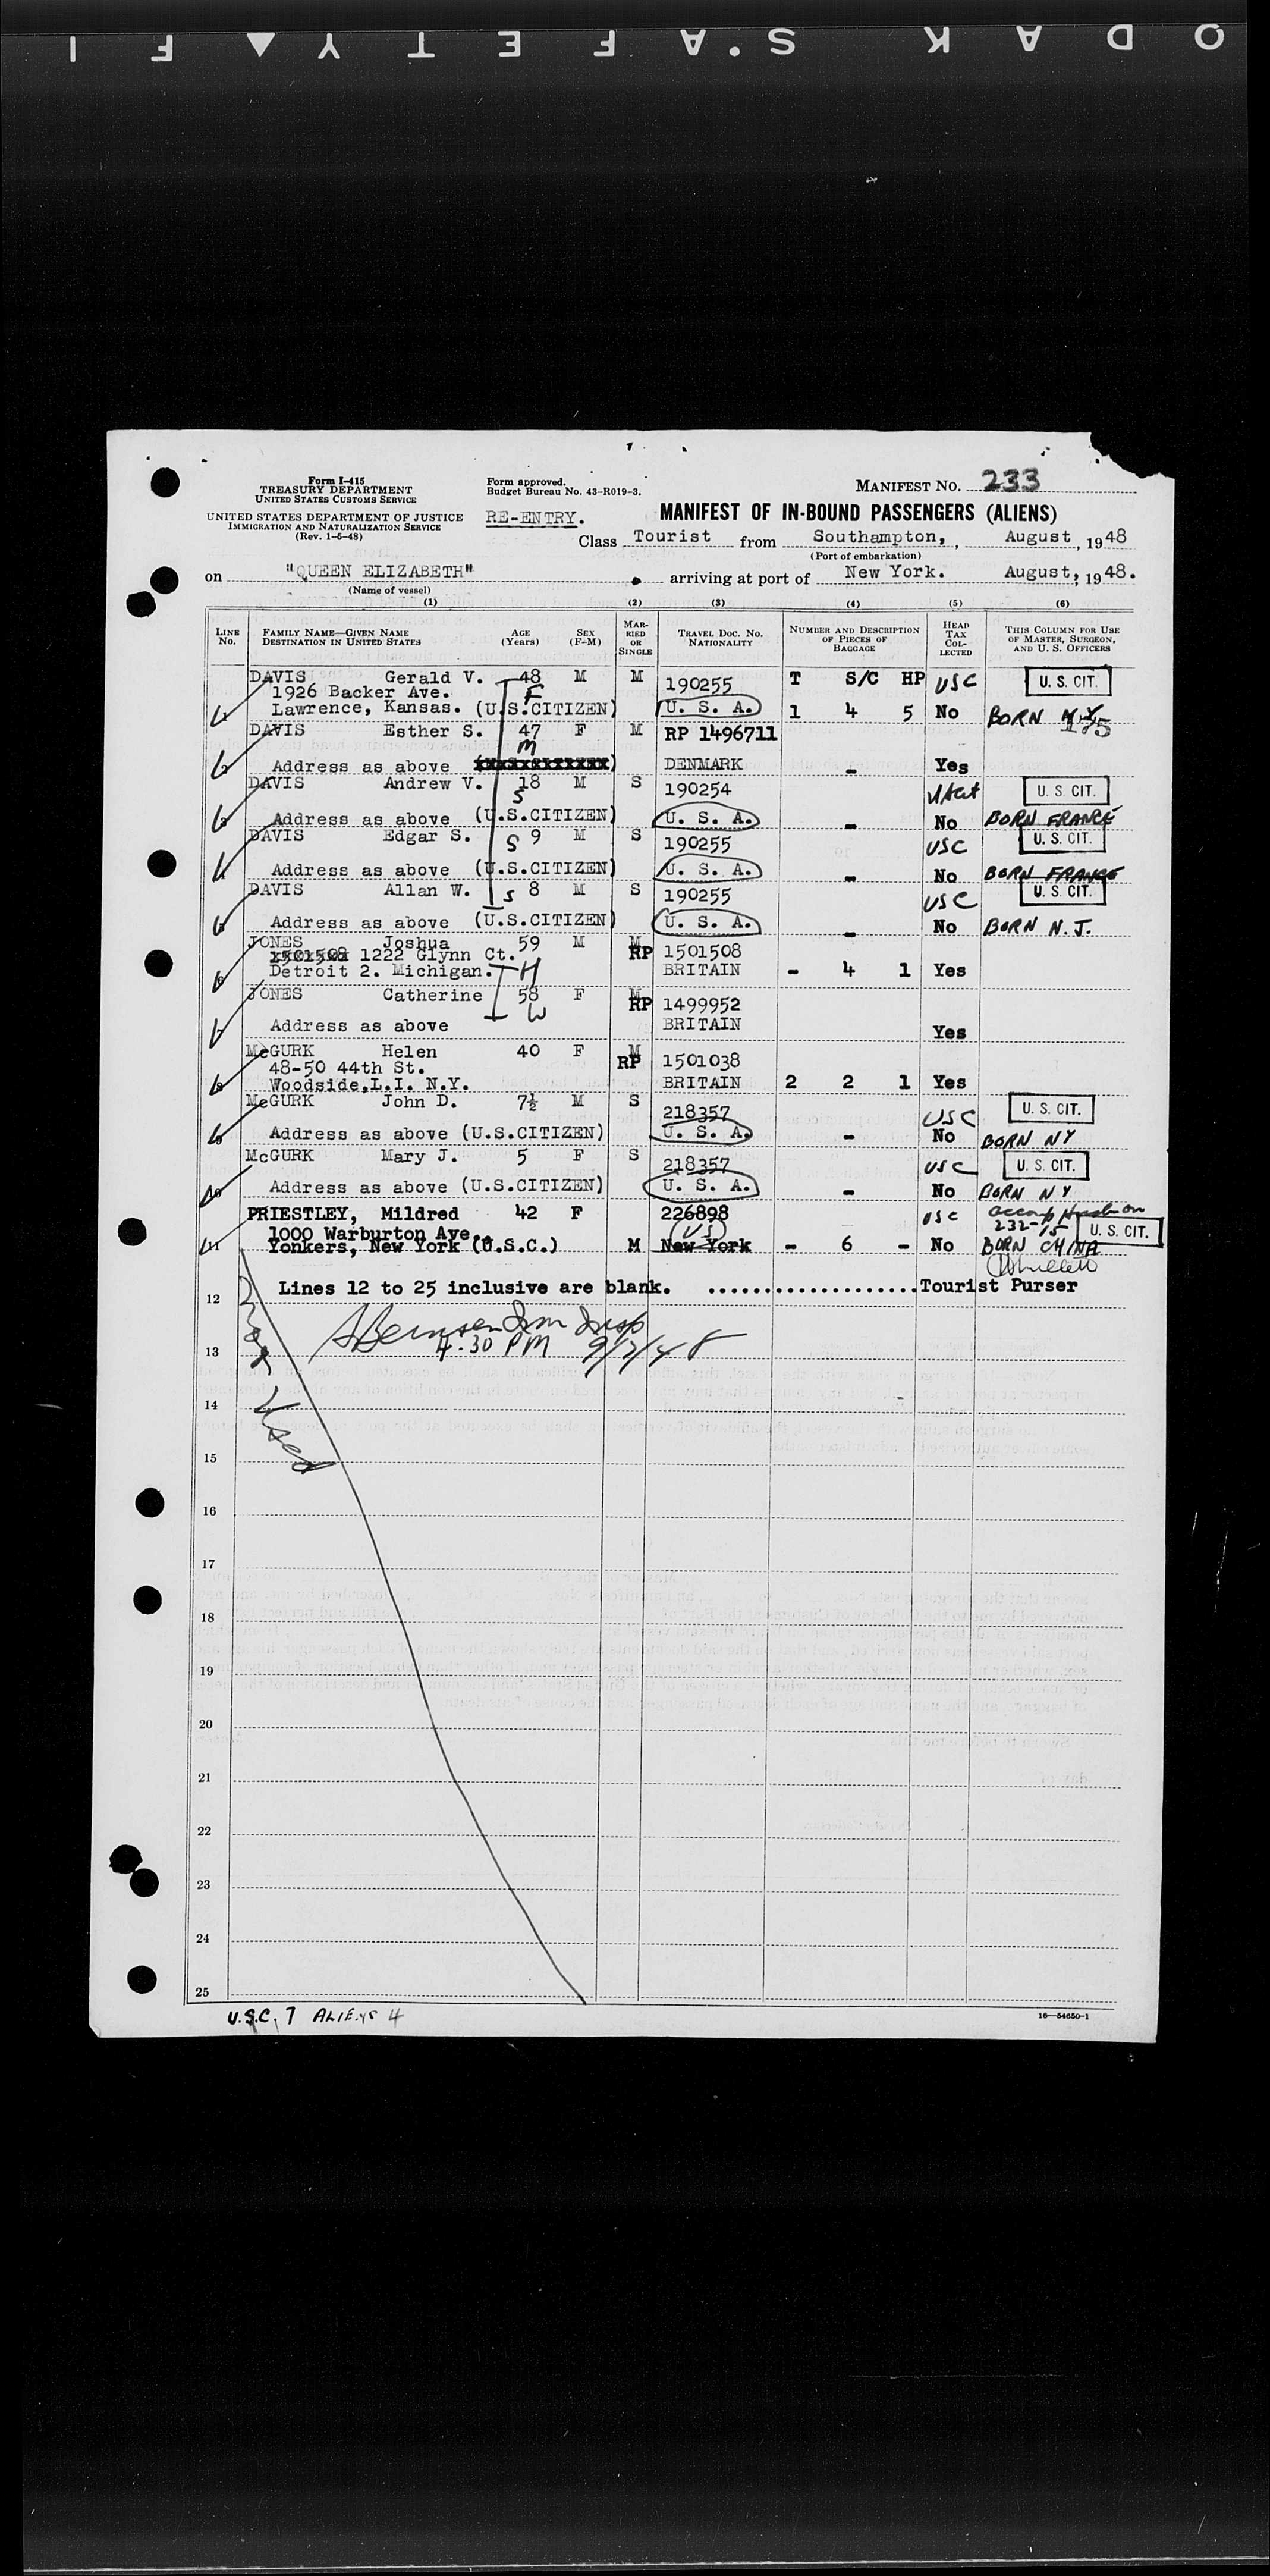 KODAK SAFETY FI
Form I-415
TREASURY DEPARTMENT
UNITED STATES CUSTOMS SERVICE
UNITED STATES DEPARTMENT OF JUSTICE
IMMIGRATION AND NATURALIZATION SERVICE
(Rev. 1-5-48)
Form approved.
Budget Bureau No. 43-R019-3.
RE-ENTRY.
MANIFEST NO. 233
MANIFEST OF IN-BOUND PASSENGERS (ALIENS)
Class Tourist from Southampton, , August , 1948
(Port of embarkation)
on "QUEEN ELIZABETH" arriving at port of New York. August, 1948.
(Name of vessel)
(1) (2) (3) (4) (5) (6)
LINE No. FAMILY NAME—GIVEN NAME DESTINATION IN UNITED STATES AGE (Years) SEX (F-M) MARRIED OR SINGLE TRAVEL DOC. NO. NATIONALITY NUMBER AND DESCRIPTION OF PIECES OF BAGGAGE HEAD TAX COLLECTED THIS COLUMN FOR USE OF MASTER, SURGEON, AND U. S. OFFICERS
DAVIS Gerald V. 48 M M 190255 T S/C HP USC U. S. CIT.
1926 Backer Ave. F
Lawrence, Kansas. (U.S.CITIZEN) U. S. A. 1 4 5 No BORN N.Y. 175
DAVIS Esther S. 47 F M RP 1496711
M
Address as above DENMARK - Yes
DAVIS Andrew V. 18 M S 190254 U. S. CIT.
S
Address as above (U.S.CITIZEN) U. S. A. - No BORN FRANCE
DAVIS Edgar S. S 9 M S 190255 USC U. S. CIT.
Address as above (U.S.CITIZEN) U. S. A. - No BORN FRANCE
DAVIS Allan W. S 8 M S 190255 USC U. S. CIT.
Address as above (U.S.CITIZEN) U. S. A. - No BORN N.J.
JONES Joshua 59 M M RP 1501508
1501508 1222 Glynn Ct.
Detroit 2. Michigan. H BRITAIN - 4 1 Yes
JONES Catherine 58 F M RP 1499952
W
Address as above BRITAIN Yes
McGURK Helen 40 F M RP 1501038
48-50 44th St.
Woodside,L.I. N.Y. BRITAIN 2 2 1 Yes
McGURK John D. 7½ M S 218357 USC U. S. CIT.
Address as above (U.S.CITIZEN) U. S. A. - No BORN NY
McGURK Mary J. 5 F S 218357 USC U. S. CIT.
Address as above (U.S.CITIZEN) U. S. A. - No BORN NY
PRIESTLEY, Mildred 42 F 226898 USC accomp Husb on
1000 Warburton Ave., (US) 232-15 U. S. CIT.
11 Yonkers, New York (U.S.C.) M New York - 6 - No BORN CHINA
Lines 12 to 25 inclusive are blank. ....................Tourist Purser
12
4:30 PM 9/2/48
13
14
Used
15
16
17
18
19
20
21
22
23
24
25
U.S.C. 7 ALIENS 4
16—54650-1